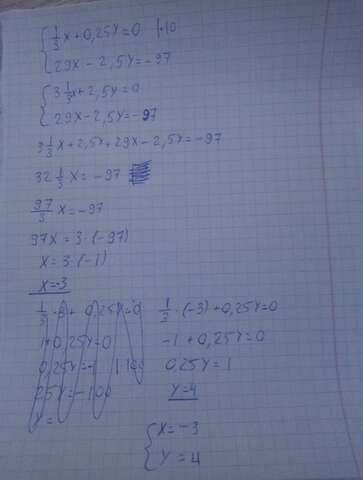 { 1/3 x + 0,25y = 0 |·10
29x - 2,5y = -97
{ 3 1/3 x + 2,5y = 0
29x - 2,5y = -97
3 1/3 x + 2,5y + 29x - 2,5y = -97
32 1/3 x = -97
97/3 x = -97
97x = 3·(-97)
x = 3·(-1)
x = -3
1/3 · (-3) + 0,25y = 0
-1 + 0,25y = 0
0,25y = 1
y = 4
{ x = -3
y = 4